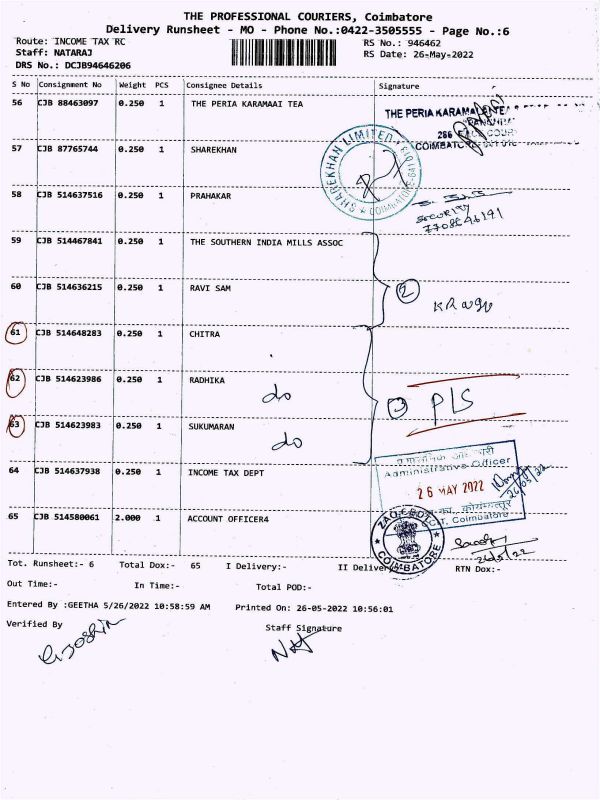 THE PROFESSIONAL COURIERS, Coimbatore
Delivery Runsheet - MO - Phone No.:0422-3505555 - Page No.:6
Route: INCOME TAX RC
RS No.: 946462
Staff: NATARAJ
RS Date: 26-May-2022
DRS No.: DCJB94646206
S No Consignment No Weight PCS Consignee Details Signature
56 CJB 88463097 0.250 1 THE PERIA KARAMAAI TEA
THE PERIA KARAMALAI TEA
286
COIMBATO
57 CJB 87765744 0.250 1 SHAREKHAN
SHAREKHAN LIMITED
COIMBATORE-641
58 CJB 514637516 0.250 1 PRAHAKAR
SECURITY
7708546191
59 CJB 514467841 0.250 1 THE SOUTHERN INDIA MILLS ASSOC
60 CJB 514636215 0.250 1 RAVI SAM
2
61 CJB 514648283 0.250 1 CHITRA
62 CJB 514623986 0.250 1 RADHIKA
do
3 PLS
63 CJB 514623983 0.250 1 SUKUMARAN
do
Administrative Officer
26 MAY 2022
26/05/22
Coimbatore
64 CJB 514637938 0.250 1 INCOME TAX DEPT
65 CJB 514580061 2.000 1 ACCOUNT OFFICER4
ZAO, CBDT
COIMBATORE
26/5/22
Tot. Runsheet:- 6 Total Dox:- 65 I Delivery:- II Delivery:- RTN Dox:-
Out Time:- In Time:- Total POD:-
Entered By :GEETHA 5/26/2022 10:58:59 AM Printed On: 26-05-2022 10:56:01
Verified By Staff Signature